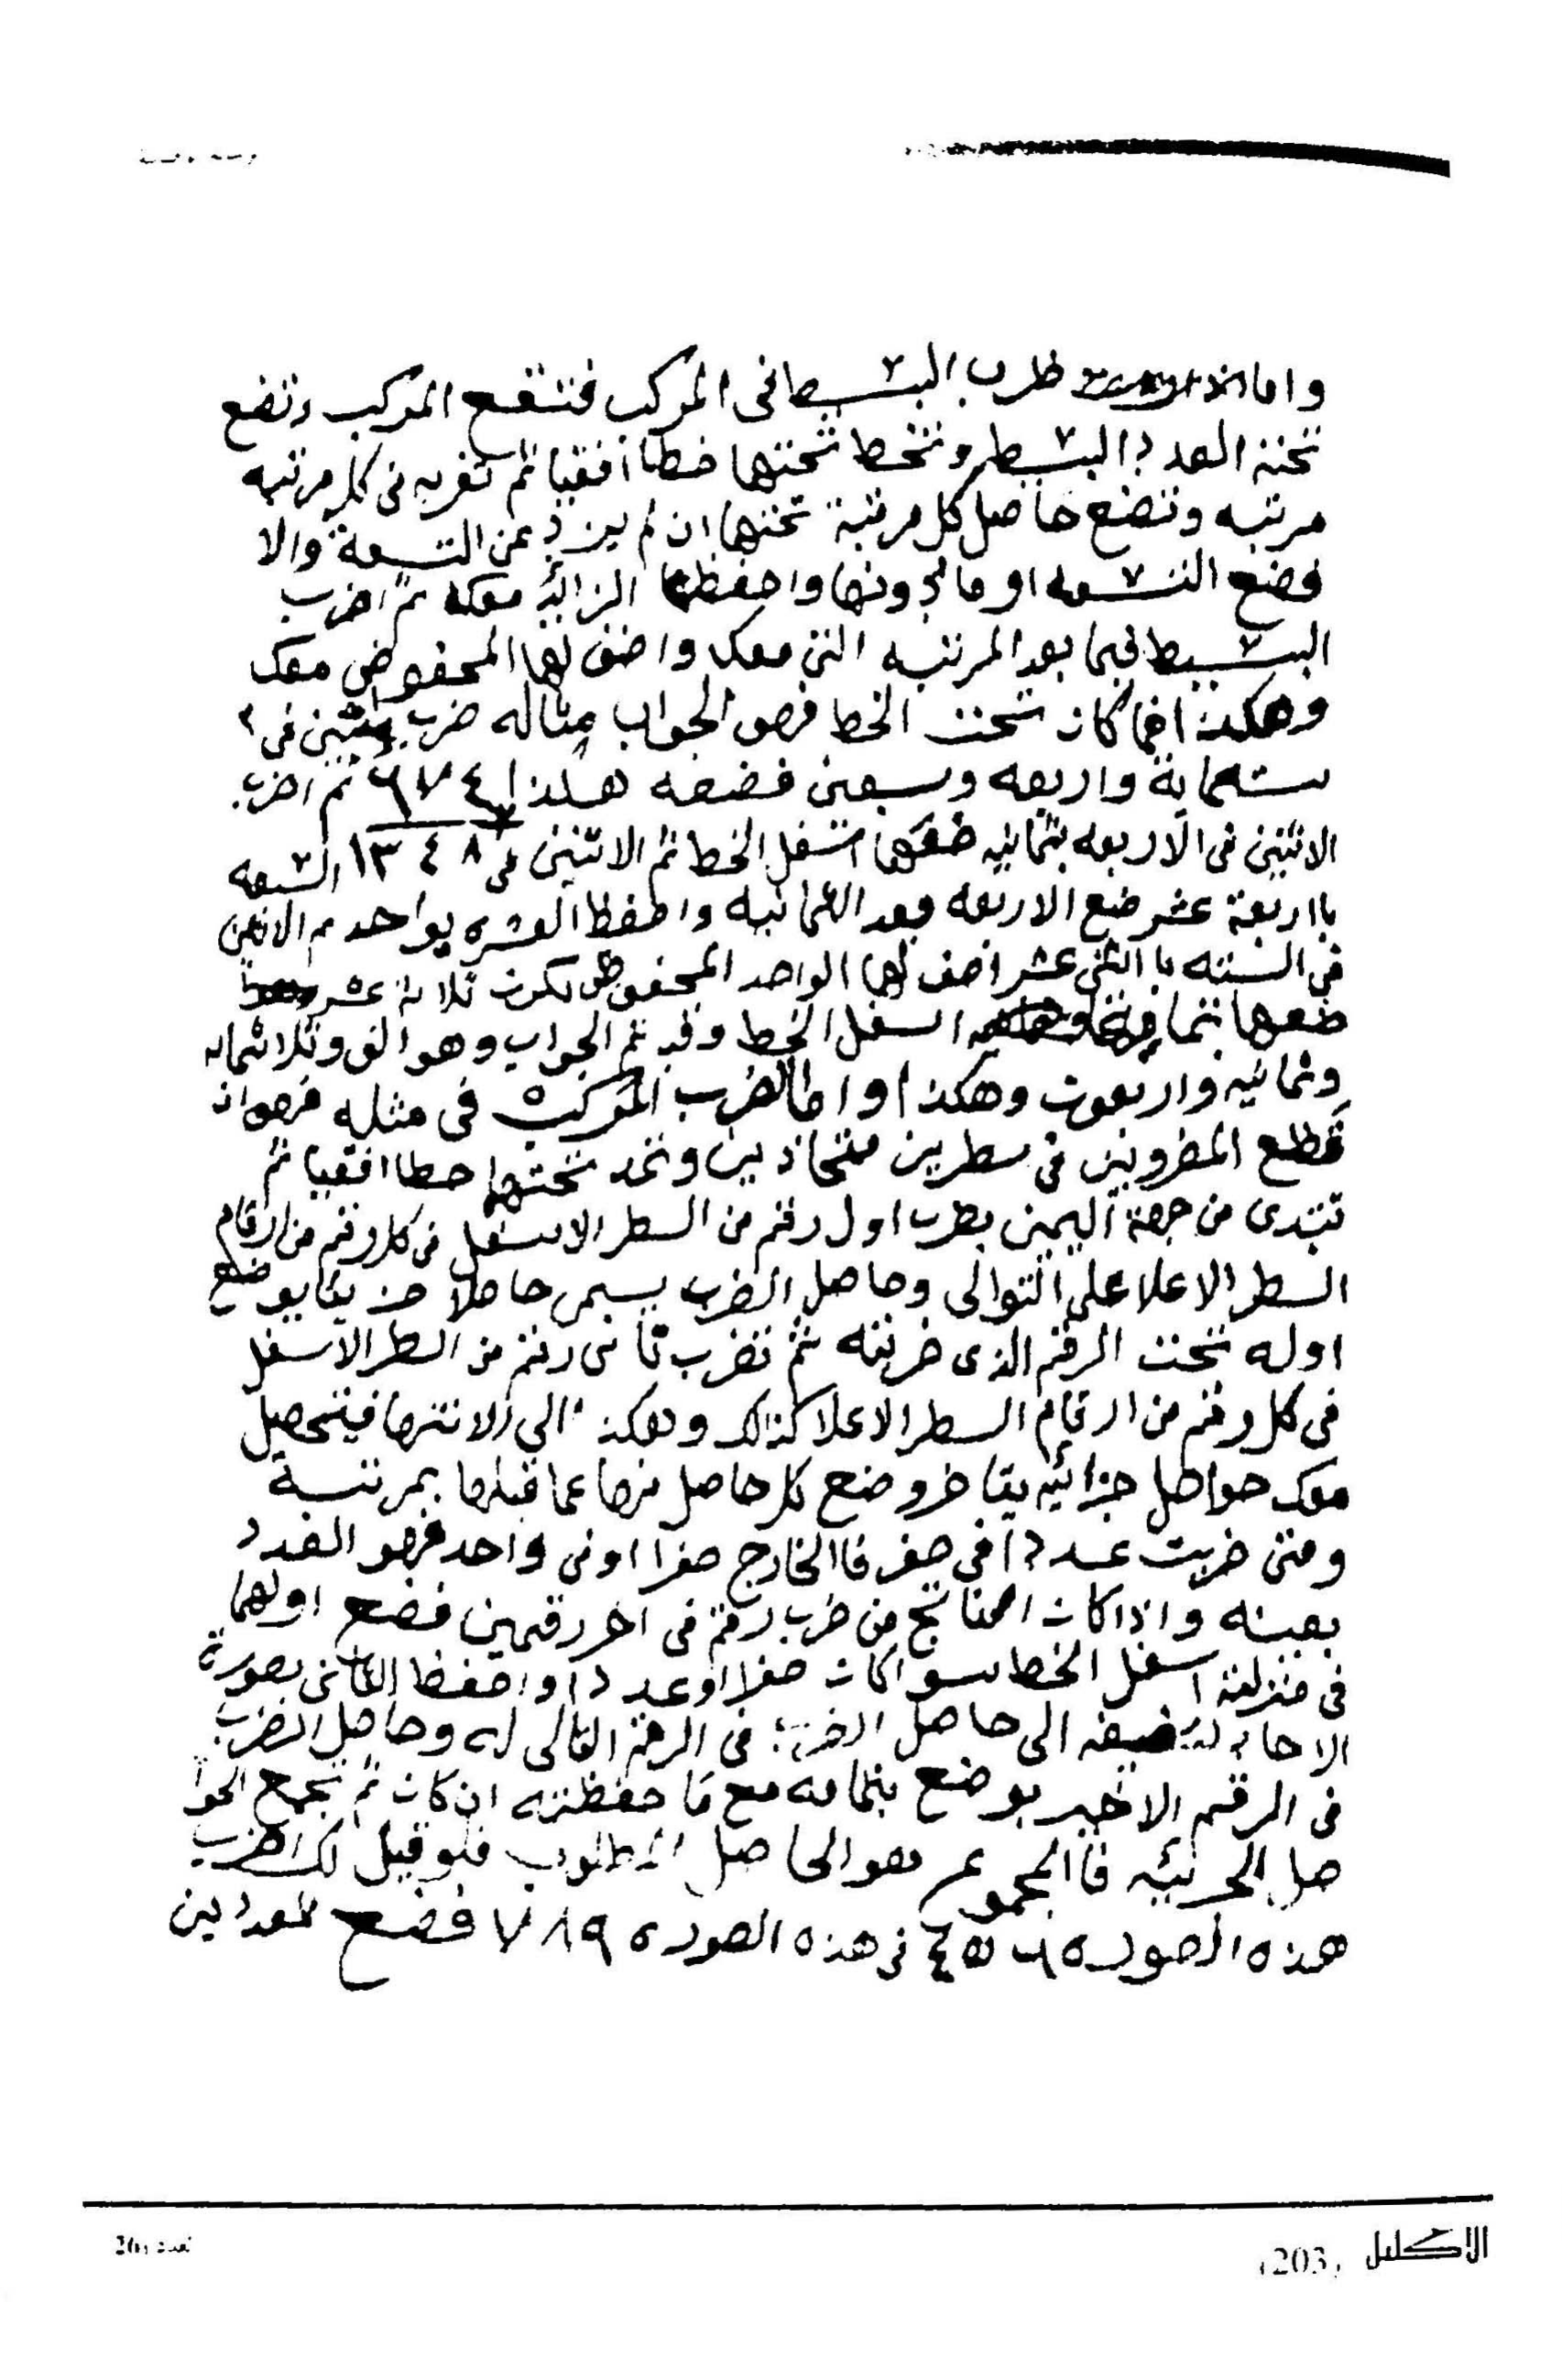 واما ضرب البسيط فى المركب فتضع المركب وتضع
تحته العدد البسيط وتخط تحتها خطا افقيا ثم تضربه فى كل مرتبه
مرتبه وتضع حاصل كل مرتبة تحتها ان لم يزد عن التسعة والا
فضع التسعه او ما دونها واحفظ الزائد معك ثم اضرب
البسيط فيما بعد المرتبه التى معك واضف لها المحفوض معك
وهكذا فما كان تحت الخط فهو الجواب مثاله ضرب اثنين فى
ستماية واربعه وسبعين فضعه هكذا ٦٧٤ ثم اضرب
الاثنين فى الاربعه بثمانيه ضعها اسفل الخط ثم الاثنين فى ١٣٤٨ السبعه
بااربعة عشر ضع الاربعه بعد الثمانيه واحفظ العشره بواحد ثم الاثنين
فى السته بااثنى عشر اضف لها الواحد المحفوظ يكون ثلاثة عشر
ضعها بتمامها اسفل الخط وقد تم الجواب وهو الف وثلاثمايه
وثمانيه واربعون وهكذا واما ضرب المركب فى مثله فهو ان
تضع المضروبين فى سطرين متحاذيين وتمد تحتهما خطا افقيا ثم
تبتدى من جهة اليمين بضرب اول رقم من السطر الاسفل فى كل رقم من ارقام
السطر الاعلا على التوالى وحاصل الضرب يسمى حاصلا جزيئا يوضع
اوله تحت الرقم الذى ضربته ثم تضرب ثانى رقم من السطر الاسفل
فى كل رقم من ارقام السطر الاعلا كذالك وهكذا الى الانتها فيتحصل
معك حواصل جزائيه يتاخر وضع كل حاصل منها عما قبلها بمرتبة
ومتى ضربت عددا فى صفر فاالخارج صفرا اوفى واحد فهو العدد
بعينه واذا كان الناتج من ضرب رقم فى اخر رقمين فضع اولهما
فى منزلته اسفل الخط سوا كان صفرا اوعددا واحفظ الثانى بصورة
الاحاد لتضيفه الى حاصل الضرب فى الرقم التالى له وحاصل الضرب
فى الرقم الاخير يوضع بتمامه مع ما حفظته ان كان ثم تجمع الحوا
صل الجزئيه فاالمجموع هو الحاصل المطلوب فلو قيل لك اضرب
هذه الصوره ٤٥٦ فى هذه الصوره ٧٨٩ فضع العددين
الاكليل (203)